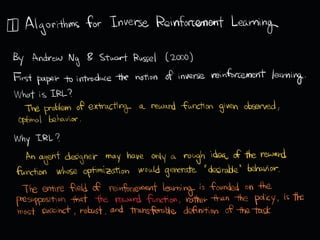 1 Algorithms for Inverse Reinforcement Learning
By Andrew Ng & Stuart Russel (2000)
First paper to introduce the notion of inverse reinforcement learning.
What is IRL?
The problem of extracting a reward function given observed,
optimal behavior.
Why IRL?
An agent designer may have only a rough idea of the reward
function whose optimization would generate "desirable" behavior.
The entire field of reinforcement learning is founded on the
presupposition that the reward function, rather than the policy, is the
most succinct, robust, and transferable definition of the task